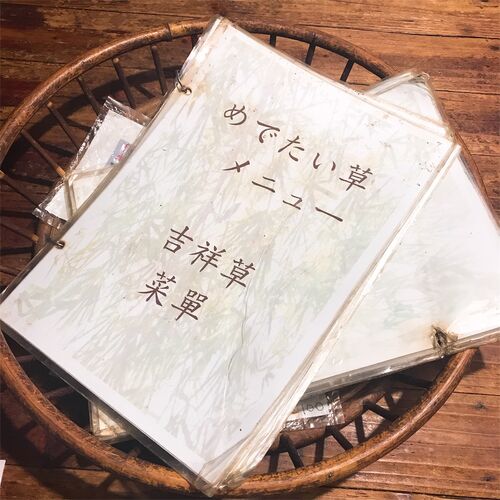 めでたい草
メニュー
吉祥草
菜單